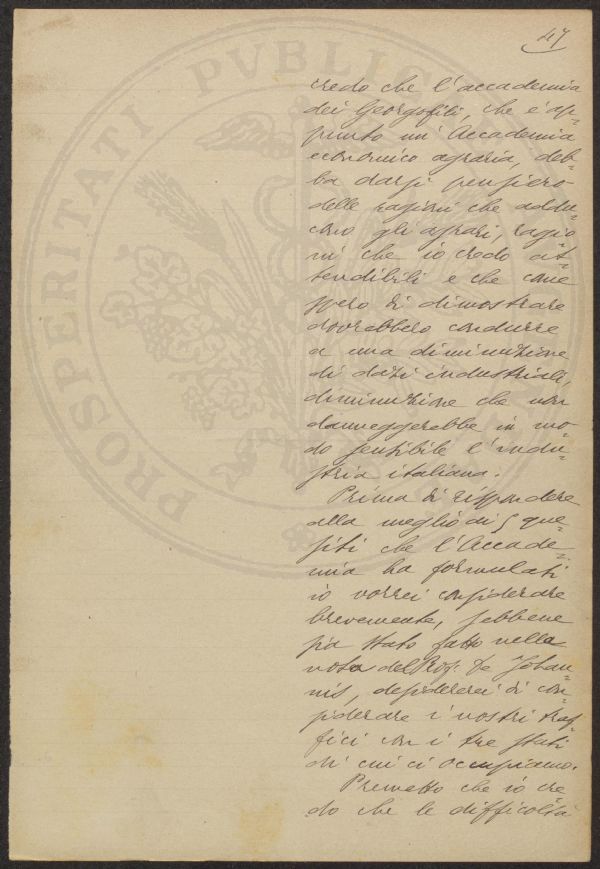 47
credo che l'accademia
dei Georgofili, che è ap=
punto un' Accademia
economico agraria, deb=
ba darsi pensiero
delle ragioni che addu=
cono gli agrari, ragio=
ni che io credo at=
tendibili e che
spero di dimostrare
dovrebbero condurre
a una diminuzione
di dazi industriali,
diminuzione che non
danneggerebbe in mo=
do sensibile l'indu=
stria italiana.
Prima di rispondere
alla meglio ai 5 que=
siti che l'Accade=
mia ha formulati
io vorrei considerare
brevemente, sebbene
sia stato fatto nella
nota del Prof. De Johan=
nis, desidererei di con=
siderare i nostri traf=
fici con i tre stati
di cui ci occupiamo.
Premetto che io cre
do che le difficoltà
PROSPERITATI PVBLICAE